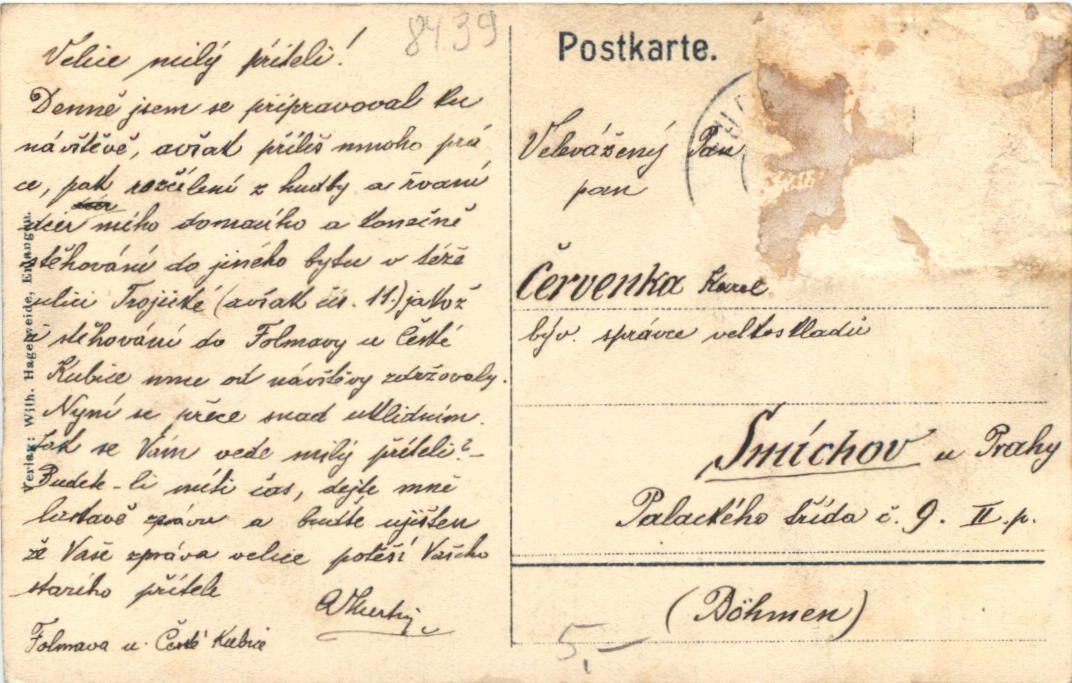 8439
Velice milý příteli!
Denně jsem se připravoval ku
návštěvě, avšak příliš mnoho prá
ce, pak rozčílení z hudby a řvaní
dcer mího domacího a konečně
stěhování do jiného bytu v téže
ulici Trojické (avšak čís. 11.) jakož
i stěhování do Folmavy u České
Kubice mne od návštěvy zdržovaly.
Nyní se přece snad uklidním.
Jak se Vám vede milý příteli? –
Budete-li míti čas, dejte mně
laskavě zprávu a buďte ujištěn
že Vaše zpráva velice potěší Vašeho
starího přítele
Folmava u České Kubice
Verlag: Wilh. Hagelweide, Erlangen.
Postkarte.
Velevážený Pan
pan
Červenka Karel
býv. správce velkoskladů
Smíchov u Prahy
Palackého třída č. 9. II. p.
(Böhmen)
5,-